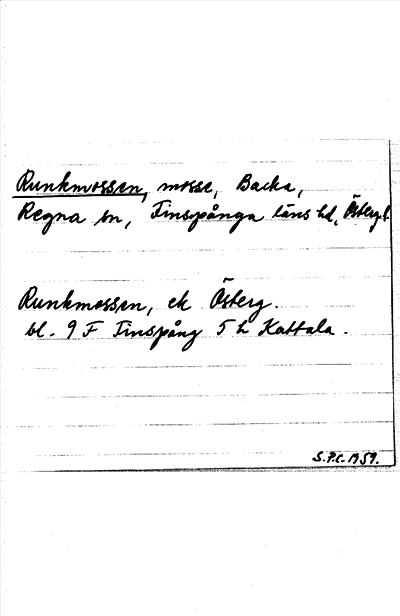 Runkmossen, mosse, Backa,
Regna sn, Finspånga läns hd, Österg.
Runkmossen, ek Österg.
bl. 9 F Finspång 5 h Kattala.
S.P.C. 1959.